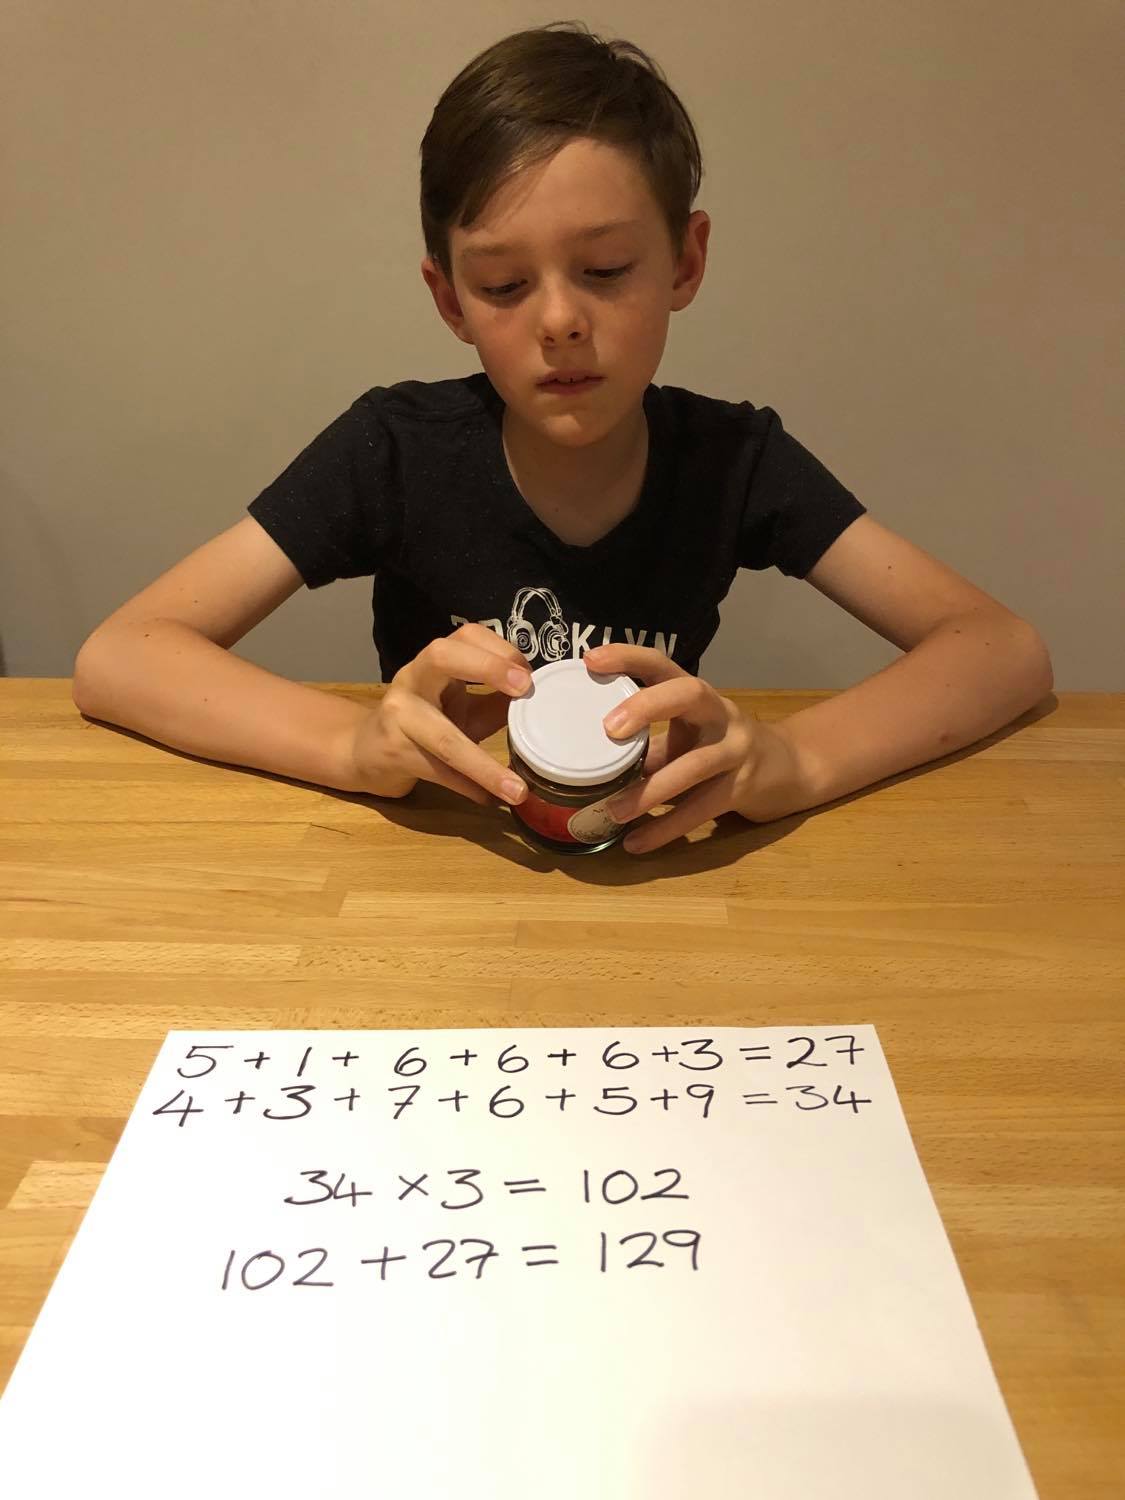 BROOKLYN
5 + 1 + 6 + 6 + 6 + 3 = 27
4 + 3 + 7 + 6 + 5 + 9 = 34
34 × 3 = 102
102 + 27 = 129